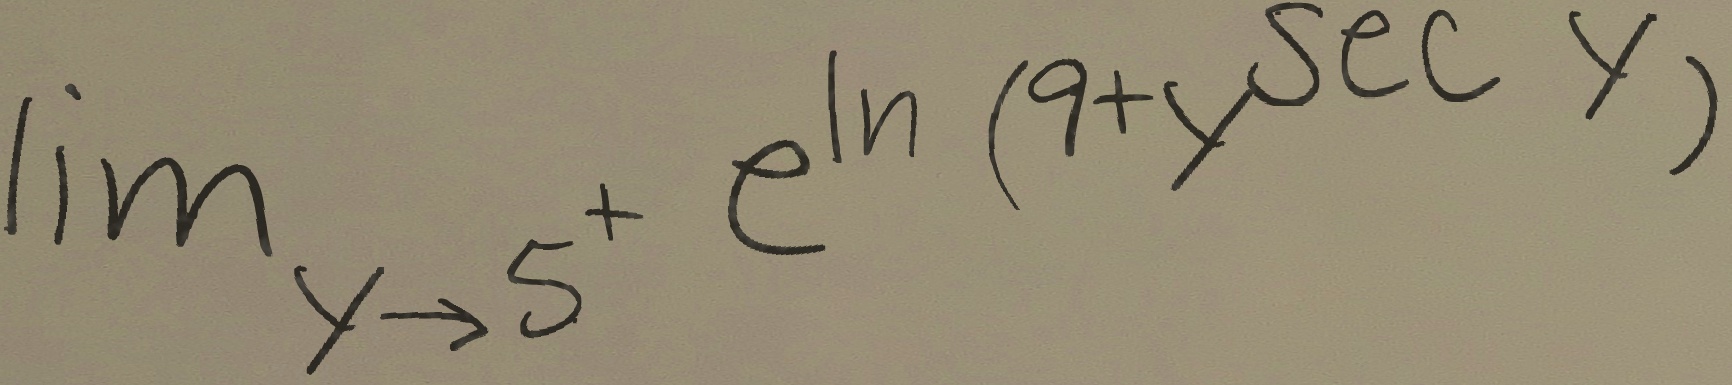 \lim_{y \to 5^+} e^{\ln(9+y^{\sec y})}